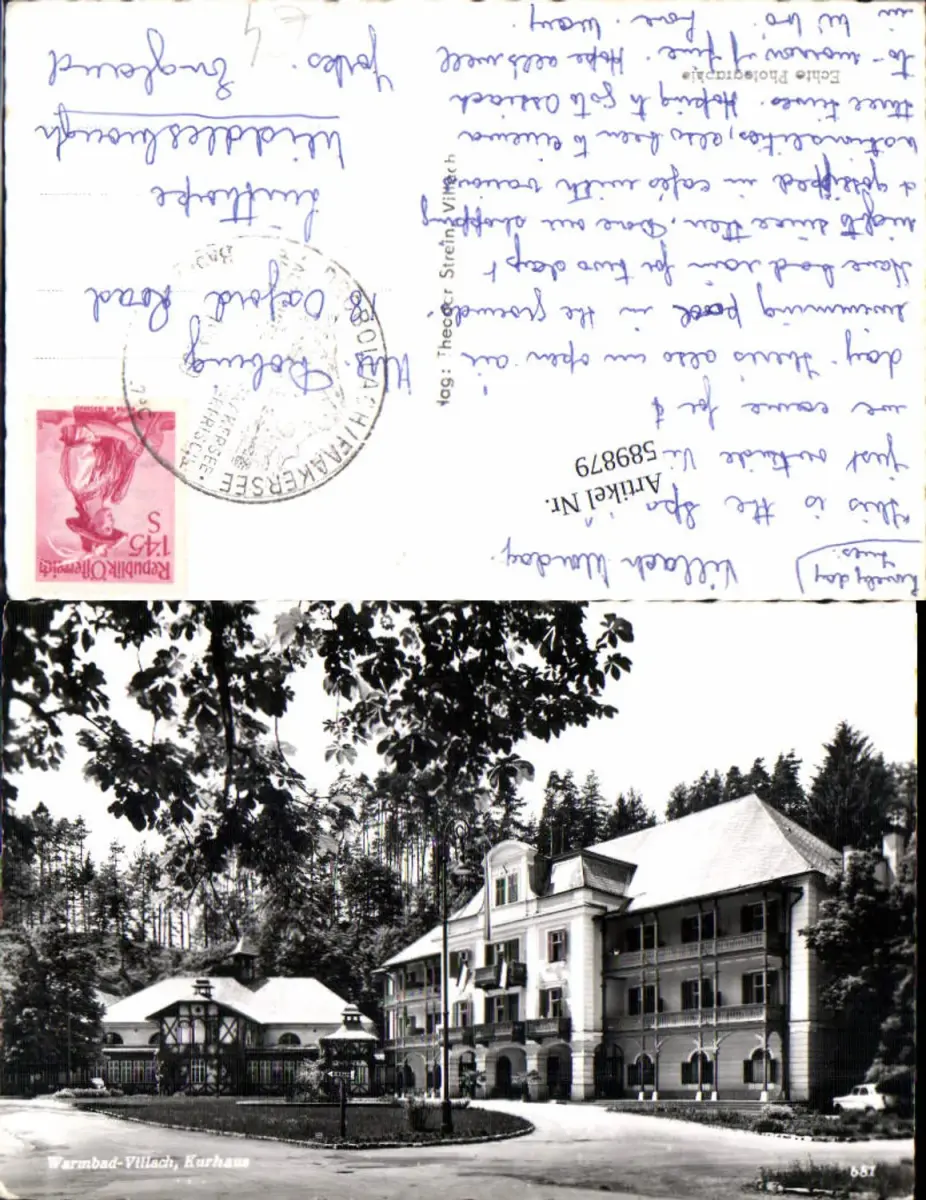 (Lovely day
Tues.)
Villach Monday.
This is the Spa
just outside Vi
we came for a
day. There's also an open air
swimming pool in the grounds.
Have had rain for two days &
nights since then. Done our shopping
& gossiped in cafés with various
nationalities, also been to cinema
three times. Hoping to go to Ossiach
to-morrow if fine. Hope all's well
in W'bro'. Love. Mary.
Artikel Nr.
589879
Echte Photographie
Theodor Strein, Villach
Republik Österreich
1'45
S
FAAKERSEE
Mrs. Robing
18 Oxford Road
Linthorpe
Middlesbrough
Yorks. England
Warmbad-Villach, Kurhaus
687